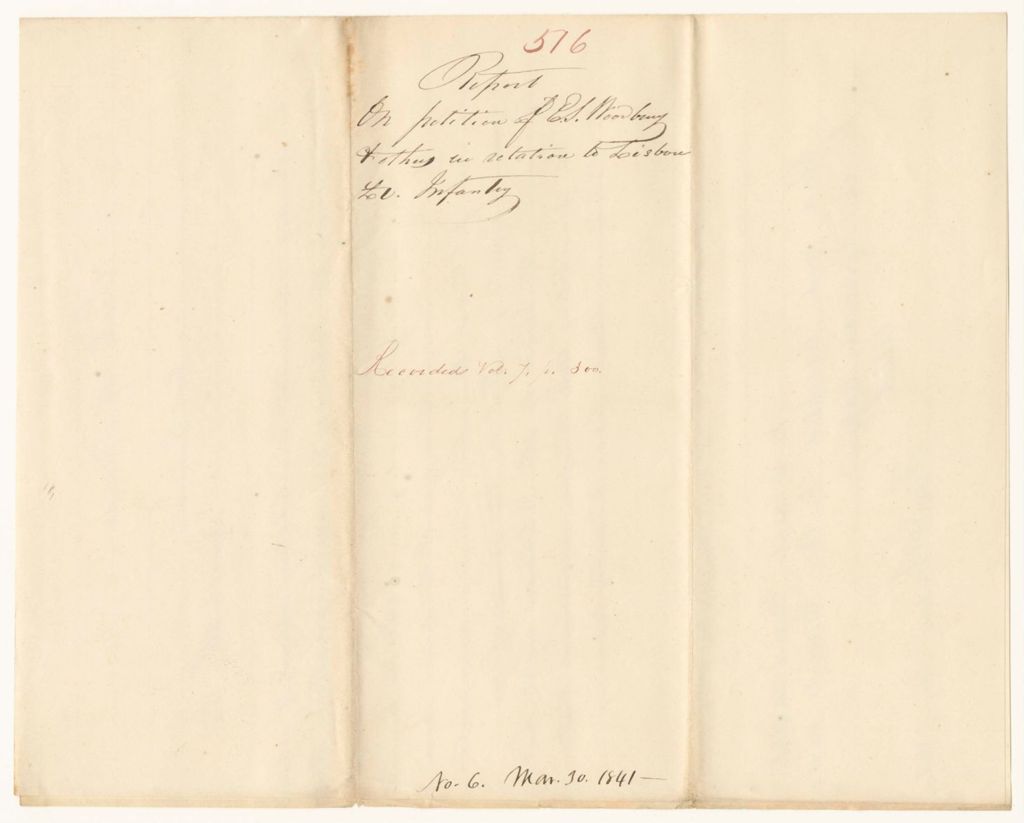 576
Report
On petition of E.S. Woodbury
& others in relation to Lisbon
Lt. Infantry
Recorded Vol. 7. p. 300.
No. 6. Mar. 30. 1841—